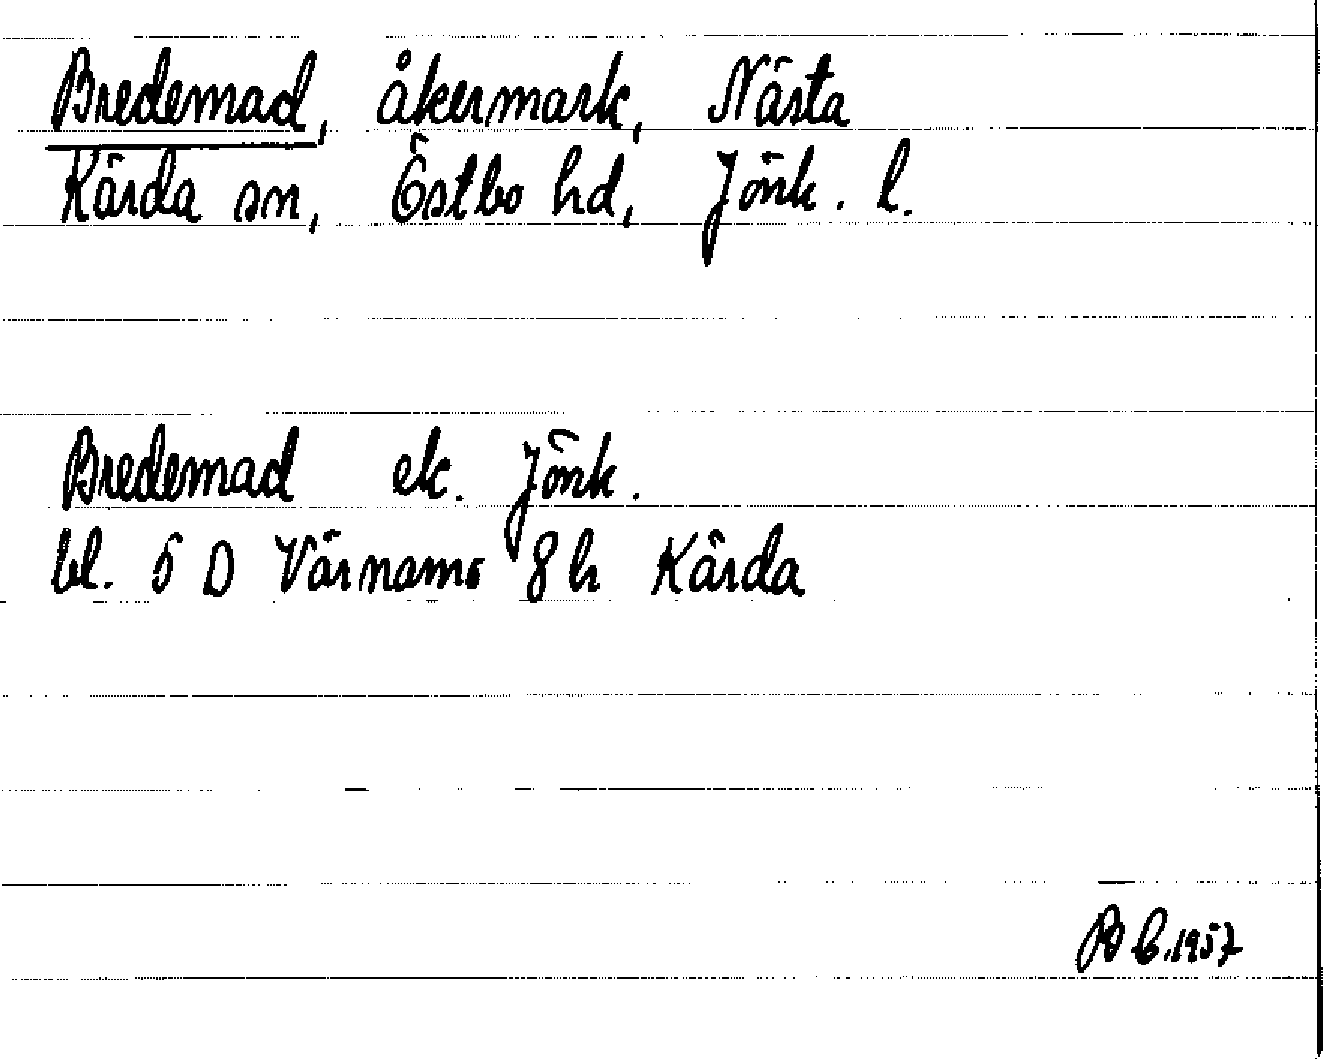 Bredemad, åkermark, Nästa
Kärda sn, Östbo hd, Jönk. l.
Bredemad ek. Jönk.
bl. 5 D Värnamo 8 h Kärda
1957